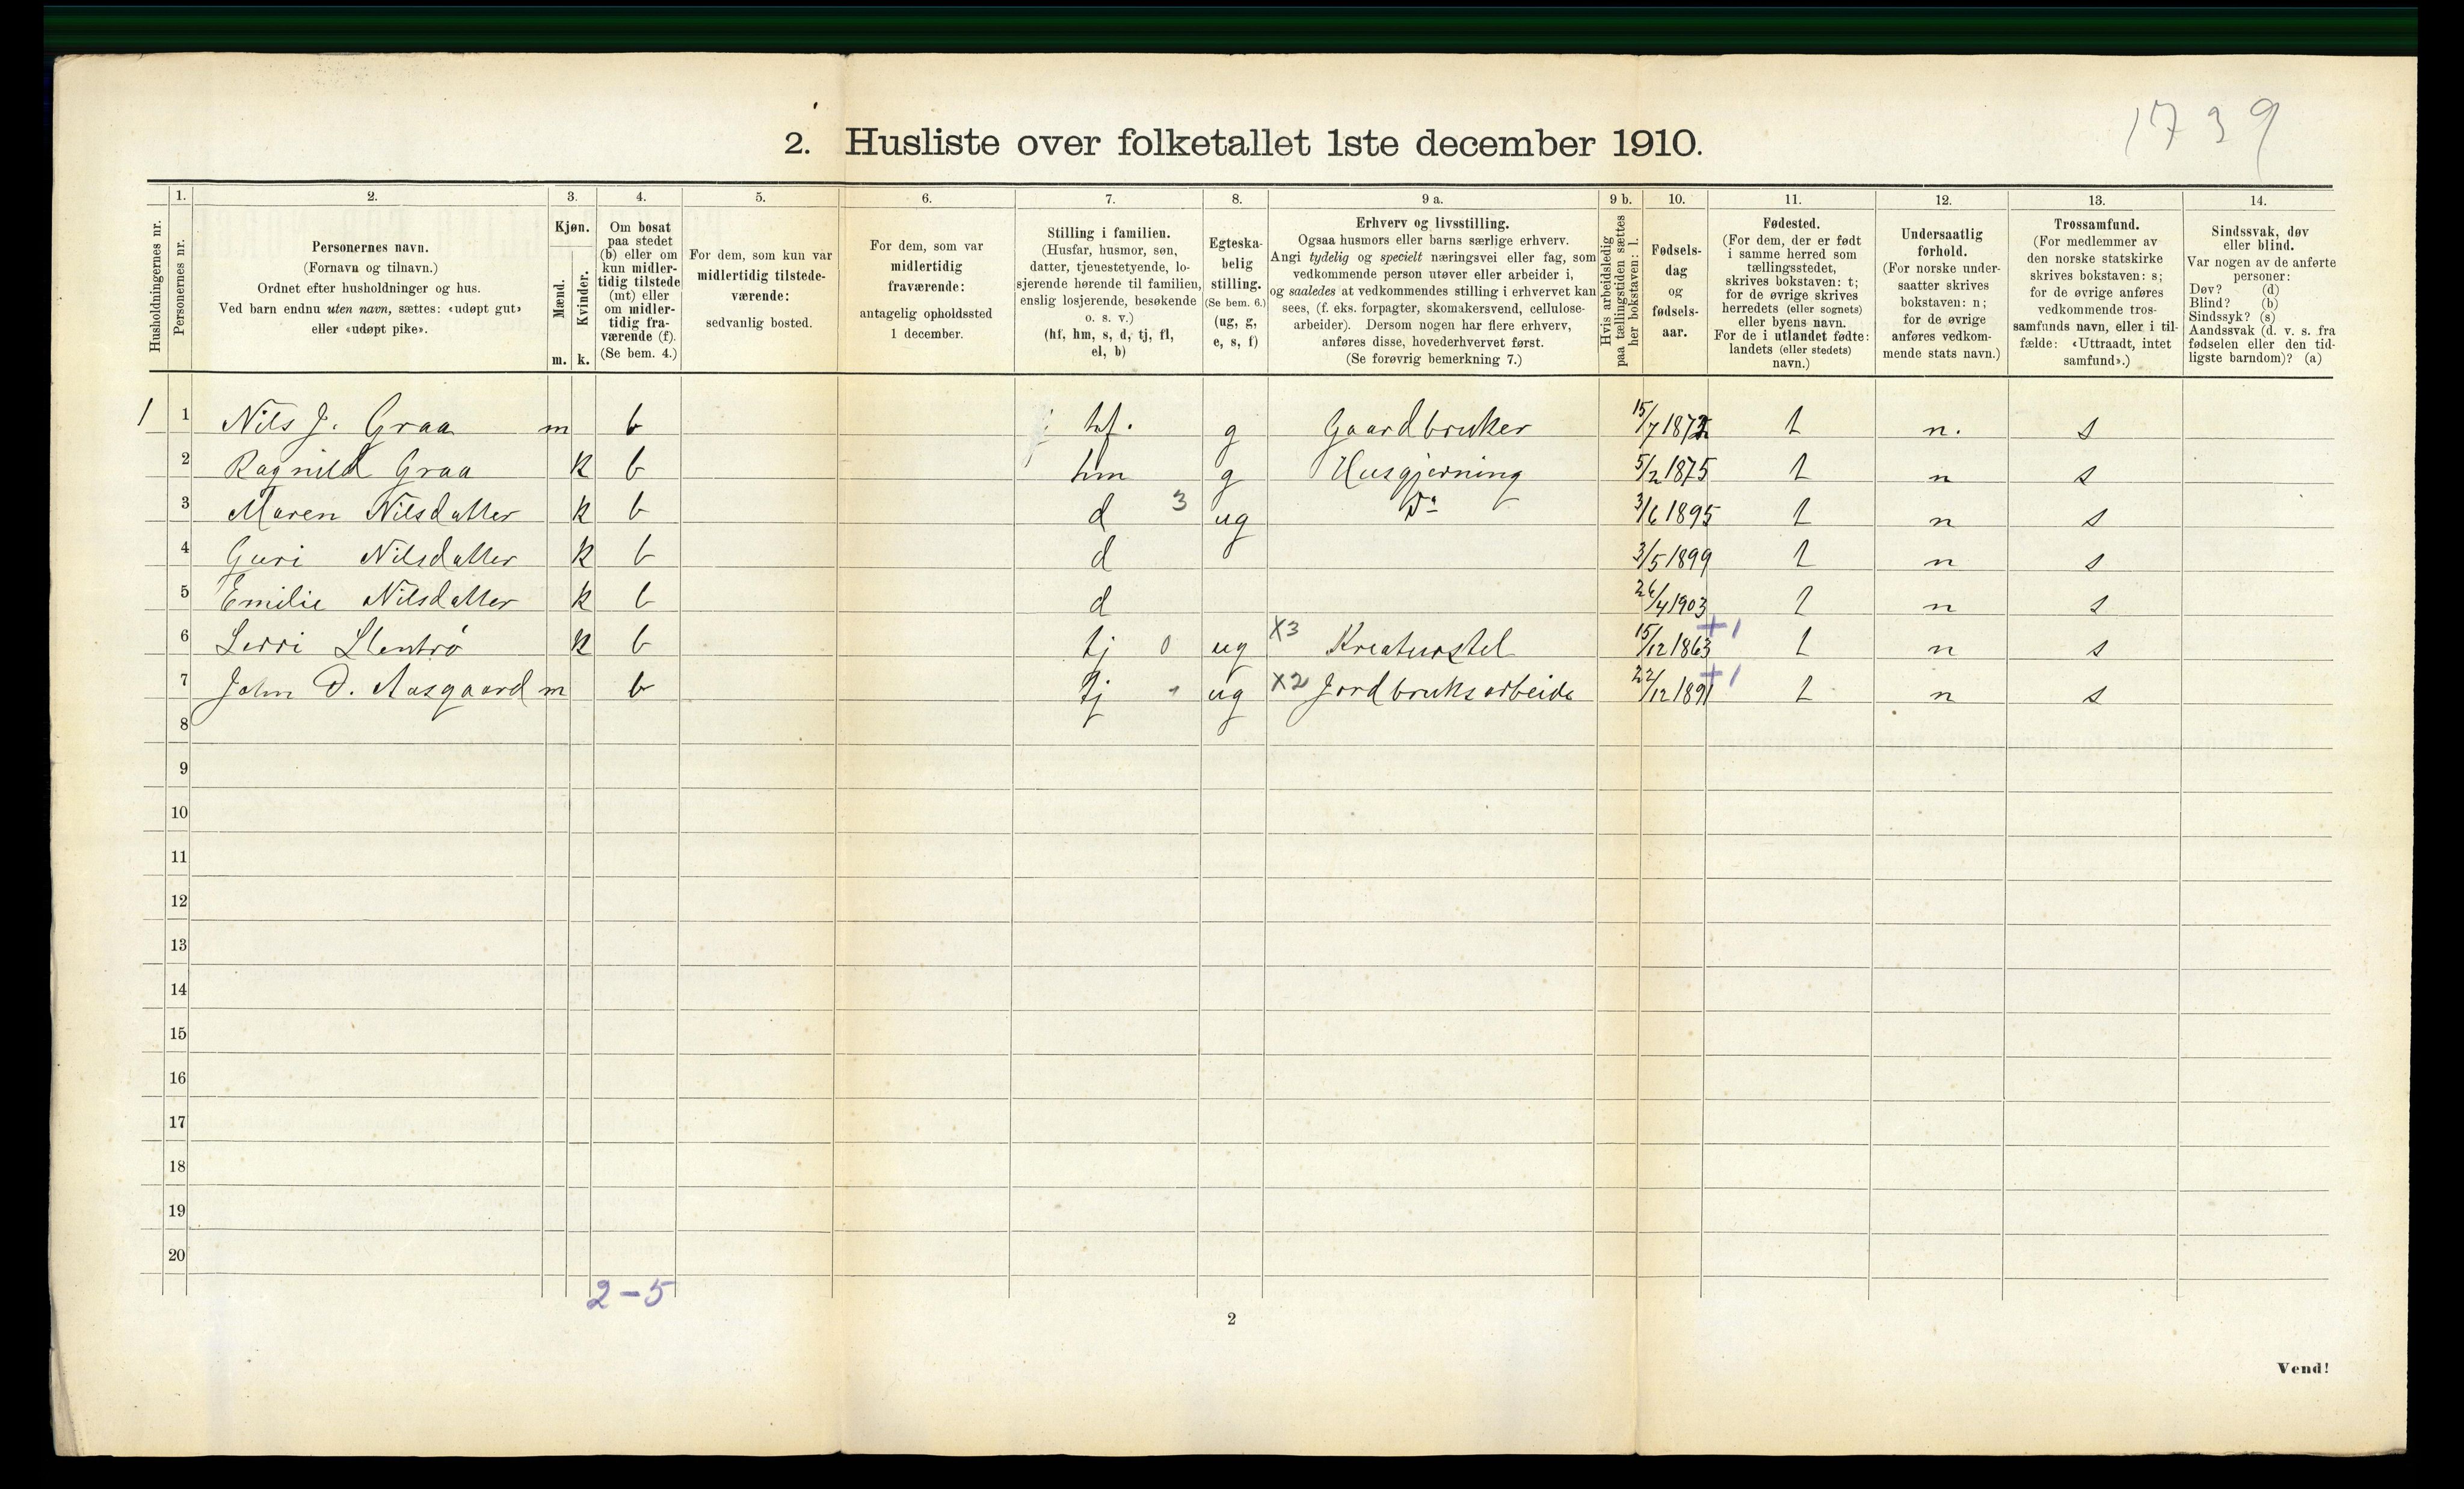 1739
2. Husliste over folketallet 1ste december 1910.
Husholdningernes nr.
1. Personernes nr.
2. Personernes navn.
(Fornavn og tilnavn.)
Ordnet efter husholdninger og hus.
Ved barn endnu uten navn, sættes: «udøpt gut»
eller «udøpt pike».
3. Kjøn.
Mænd. m.
Kvinder. k.
4. Om bosat
paa stedet
(b) eller om
kun midler-
tidig tilstede
(mt) eller
om midler-
tidig fra-
værende (f).
(Se bem. 4.)
5. For dem, som kun var
midlertidig tilstede-
værende:
sedvanlig bosted.
6. For dem, som var
midlertidig
fraværende:
antagelig opholdssted
1 december.
7. Stilling i familien.
(Husfar, husmor, søn,
datter, tjenestetyende, lo-
sjerende hørende til familien,
enslig losjerende, besøkende
o. s. v.)
(hf, hm, s, d, tj, fl,
el, b)
8. Egteska-
belig
stilling.
(Se bem. 6.)
(ug, g,
e, s, f)
9 a. Erhverv og livsstilling.
Ogsaa husmors eller barns særlige erhverv.
Angi tydelig og specielt næringsvei eller fag, som
vedkommende person utøver eller arbeider i,
og saaledes at vedkommendes stilling i erhvervet kan
sees, (f. eks. forpagter, skomakersvend, cellulose-
arbeider). Dersom nogen har flere erhverv,
anføres disse, hovederhvervet først.
(Se forøvrig bemerkning 7.)
9 b. Hvis arbeidsledig
paa tællingstiden sættes
her bokstaven: l.
10. Fødsels-
dag
og
fødsels-
aar.
11. Fødested.
(For dem, der er født
i samme herred som
tællingsstedet,
skrives bokstaven: t;
for de øvrige skrives
herredets (eller sognets)
eller byens navn.
For de i utlandet fødte:
landets (eller stedets)
navn.)
12. Undersaatlig
forhold.
(For norske under-
saatter skrives
bokstaven: n;
for de øvrige
anføres vedkom-
mende stats navn.)
13. Trossamfund.
(For medlemmer av
den norske statskirke
skrives bokstaven: s;
for de øvrige anføres
vedkommende tros-
samfunds navn, eller i til-
fælde: «Uttraadt, intet
samfund».)
14. Sindssvak, døv
eller blind.
Var nogen av de anførte
personer:
Døv? (d)
Blind? (b)
Sindssyk? (s)
Aandssvak (d. v. s. fra
fødselen eller den tid-
ligste barndom)? (a)
1 1 Nils J. Graa m b hf. g Gaardbruker 15/7 1872 t n. s
2 Ragnild Graa k b hm g Husgjerning 5/2 1875 t n s
3 Maren Nilsdatter k b d 3 ug Do 3/6 1895 t n s
4 Guri Nilsdatter k b d 3/5 1899 t n s
5 Emilie Nilsdatter k b d 26/4 1903 t n s
6 k b tj 0 ug X3 Kreaturstel 15/12 1863 +1 t n s
7 John D. Aasgaard m b tj ug X2 Jordbruksarbeide 22/12 1891 +1 t n s
8
9
10
11
12
13
14
15
16
17
18
19
20
2-5
2
Vend!